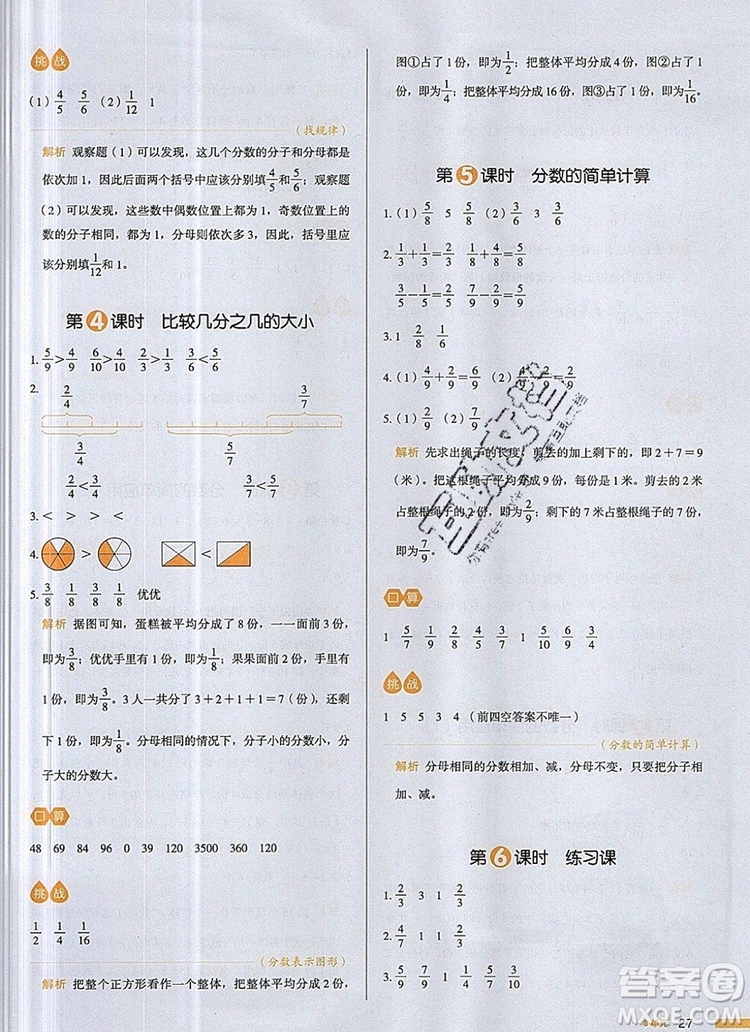 挑战
(1) 4/5 5/6 (2) 1/12 1
(找规律)
解析 观察题(1)可以发现,这几个分数的分子和分母都是
依次加1,因此后面两个括号中应该分别填4/5和5/6;观察题
(2)可以发现,这些数中偶数位置上都为1,奇数位置上的
数的分子相同,都为1,分母则依次多3,因此,括号里应
该分别填1/12和1。
第4课时 比较几分之几的大小
1. 5/9>4/9 6/10>4/10 2/3>1/3 3/6<5/6
2. 2/4 3/7
3/4 5/7
2/4<3/4 3/7<5/7
3. < > < >
4. > > <
5. 3/8 1/8 3/8 1/8 优优
解析 据图可知,蛋糕被平均分成了8份,一一面前3份,
即为3/8;优优手里有1份,即为1/8;果果面前有2份,手里
1份,即为3/8。3人一共分了3+2+1+1=7(份),还剩
下1份,即为1/8。分母相同的情况下,分子小的分数小,分
子大的分数大。
口算
48 69 84 96 0 39 120 3500 360 120
挑战
1/2 1/4 1/16
(分数表示图形)
解析 把整个正方形看作一个整体,把整体平均分成2份,
图①占了1份,即为1/2;把整体平均分成4份,图②占了1
份,即为1/4;把整体平均分成16份,图③占了1份,即为1/16。
第5课时 分数的简单计算
1. (1) 5/8 5 5/8 (2) 3/6 3 3/6
2. 1/3+1/3=2/3 2/8+4/8=6/8
6/9-3/9=3/9 5/7-2/7=3/7
3. 1 2/8 1/6
4. (1) 2/9+2/9=4/9 (2) 4/9
5. (1) 2/9 (2) 7/9
解析 先求出绳子的长度:剪去的加上剩下的,即2+7=9
(米)。把这根绳子平均分成9份,每份是1米。剪去的2米
占整根绳子的2份,即为2/9。剩余的7米占整根绳子的7
份,即为7/9。
口算
1 5/7 1/9 1/5 3/7 1 5/10 3/4
挑战
1 5 5 3 4 (前四空答案不唯一)
(分数的简单计算)
解析 分母相同的分数相加、减,分母不变,只把分子相
加、减。
第6课时 练习课
1. 2/3 3 1 2/3
2. 4/7 1 1/3 2/4
3. 5/9 7/9 1 1/3 1 3/7
6单元 27
答案圈
MXQE.COM